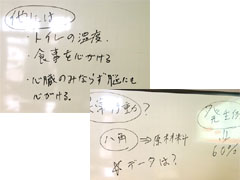 他には
・トイレの温度.
・食事を心がける
・心臓のみならず脳にも
心がける.
?
八丙 ⇒ 原材料
データは?
60%